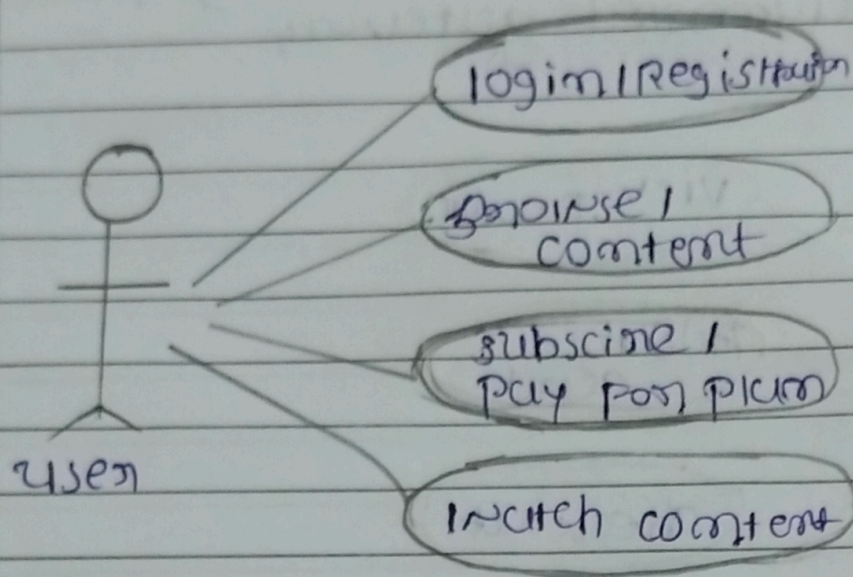 login/Registration
Browse/
content
subscine/
pay for plan
watch content
user